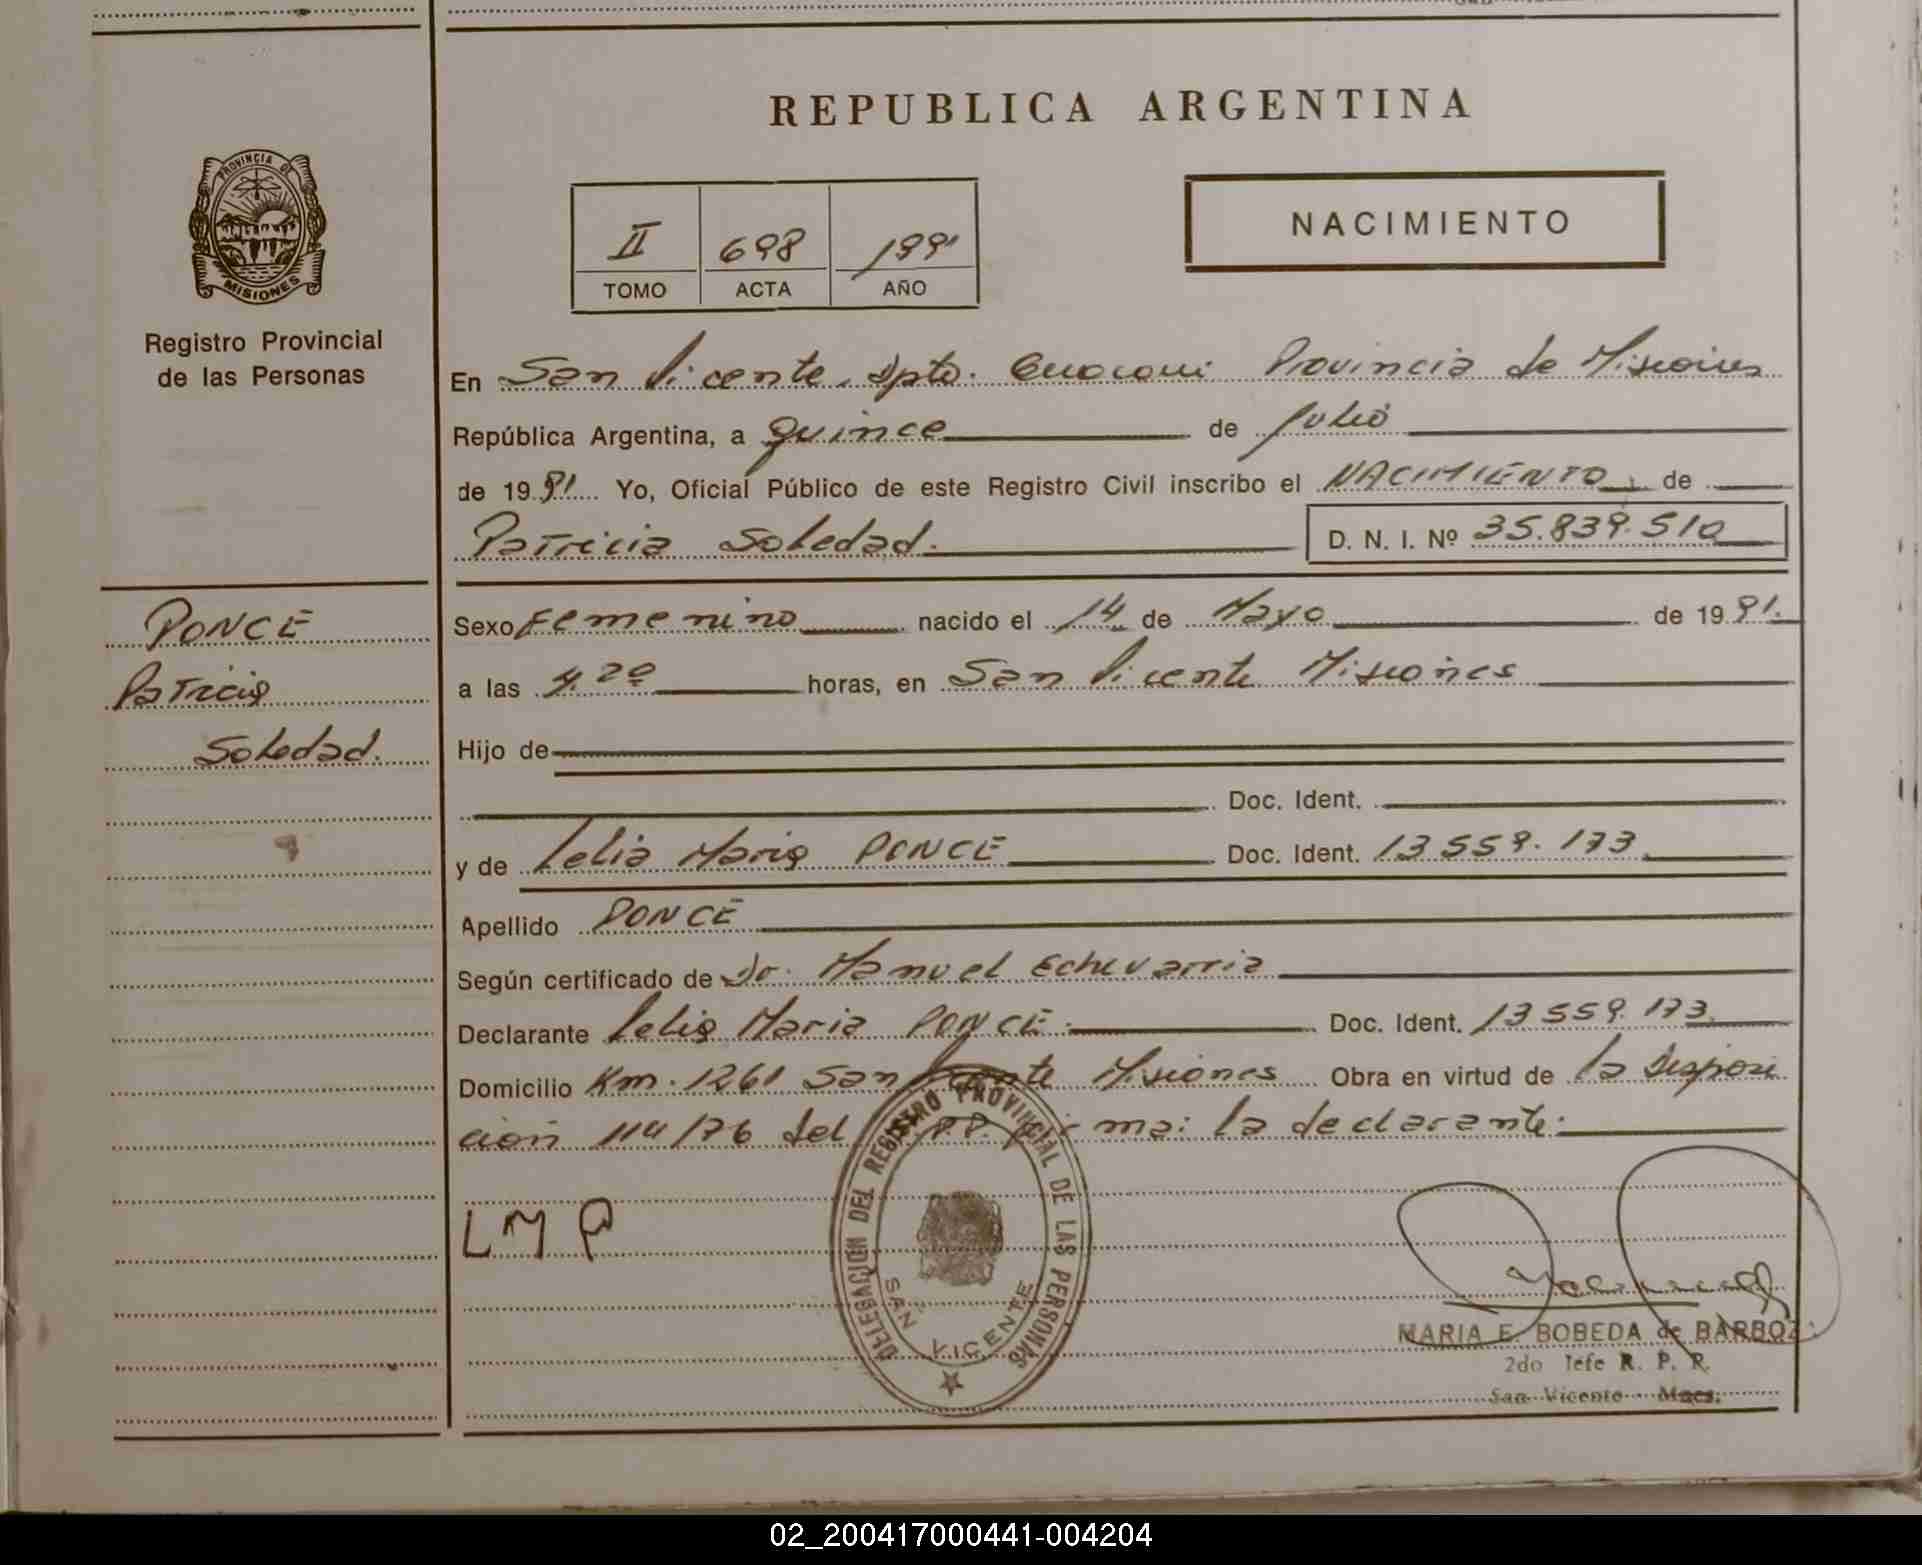 REPUBLICA ARGENTINA
PROVINCIA DE
MISIONES
Registro Provincial
de las Personas
II 698 1991
TOMO ACTA AÑO
NACIMIENTO
En San Vicente, Dpto. Guaraní Provincia de Misiones
República Argentina, a quince de julio
de 1991 Yo, Oficial Público de este Registro Civil inscribo el NACIMIENTO de
Patricia Soledad.
D. N. I. Nº 35.839.510
PONCE
Patricia
Soledad.
Sexo Femenino nacido el 14 de Mayo de 1991.
a las 4.20 horas, en San Vicente Misiones
Hijo de
Doc. Ident.
y de Lelia Maria PONCE Doc. Ident. 13559.173
Apellido PONCE
Según certificado de Dr. Manuel Echevarria
Declarante Lelia Maria PONCE. Doc. Ident. 13559.173
Domicilio Km. 1261 San Vicente Misiones Obra en virtud de la disposi
ción 114/76 del RPP. firma: la declarante.
LMP
DELEGACION DEL REGISTRO PROVINCIAL DE LAS PERSONAS
SAN VICENTE
MARIA E. BOBEDA de BARBOZA
2do Jefe R. P. P.
San Vicente Mnes.
02_200417000441-004204